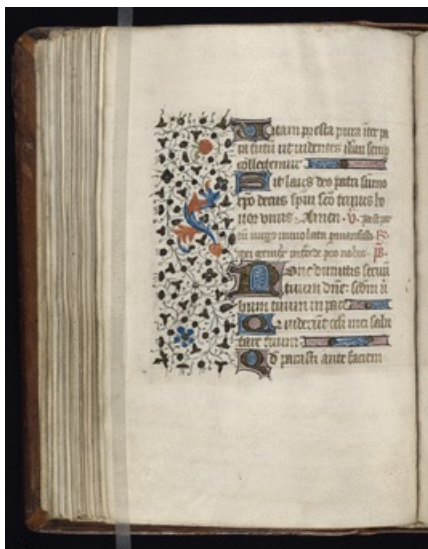 Vitam presta pura iter pa
ra tutu ut videntes ihm semp
colletemur
Sit laus deo patri sumo
xpo decus spui sco tripus ho
nor unus. Amen. V. post par
tu virgo inviolata permansisti. R.
dei genitrix intercede pro nobis. ps.
Nunc dimittis servu
tuum dne: scdm v
bum tuum in pace
Q viderut ocli mei salu
tare tuum
Qd parasti ante faciem